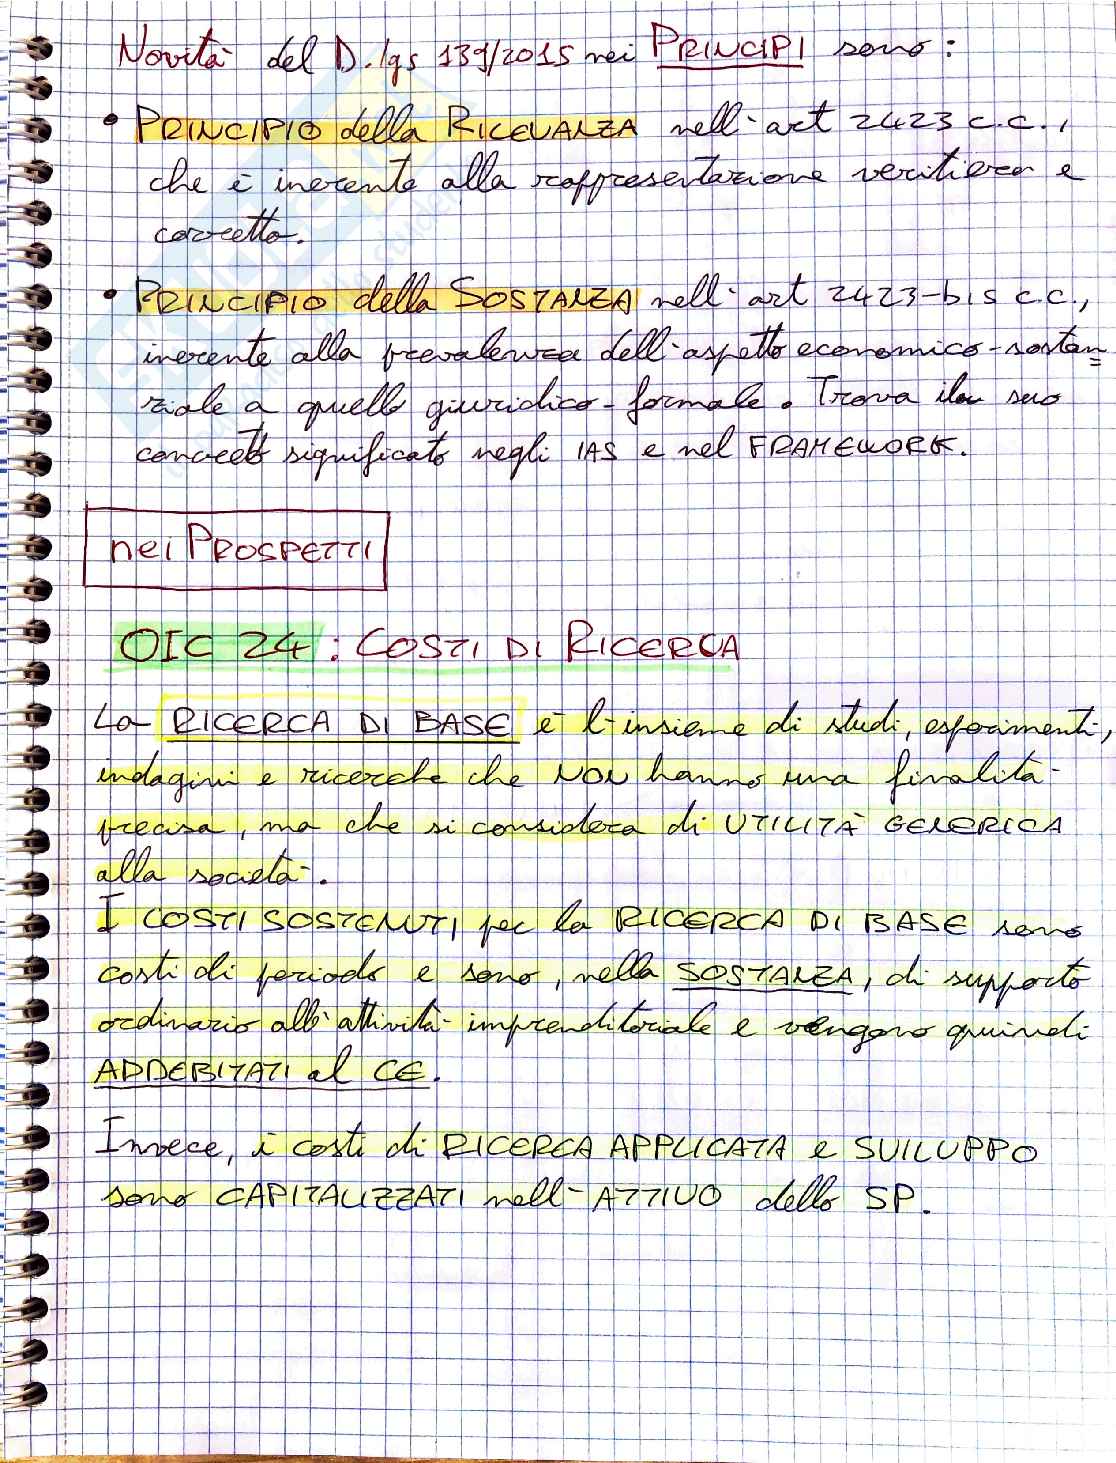 Novità del D.lgs 139/2015 nei PRINCIPI sono:
• PRINCIPIO della RILEVANZA nell'art 2423 c.c.,
che è inerente alla rappresentazione veritiera e
corretta.
• PRINCIPIO della SOSTANZA nell'art 2423-bis c.c.,
inerente alla prevalenza dell'aspetto economico-sostan=
ziale a quello giuridico-formale. Trova il suo
concetto significato negli IAS e nel FRAMEWORK.
nei PROSPETTI
OIC 24: COSTI DI RICERCA
La RICERCA DI BASE è l'insieme di studi, esperimenti,
indagini e ricerche che NON hanno una finalità
precisa, ma che si considera di UTILITÀ GENERICA
alla società.
I COSTI SOSTENUTI per la RICERCA DI BASE sono
costi di periodo e sono, nella SOSTANZA, di supporto
ordinario all'attività imprenditoriale e vengono quindi
ADDEBITATI al CE.
Invece, i costi di RICERCA APPLICATA e SVILUPPO
sono CAPITALIZZATI nell'ATTIVO dello SP.